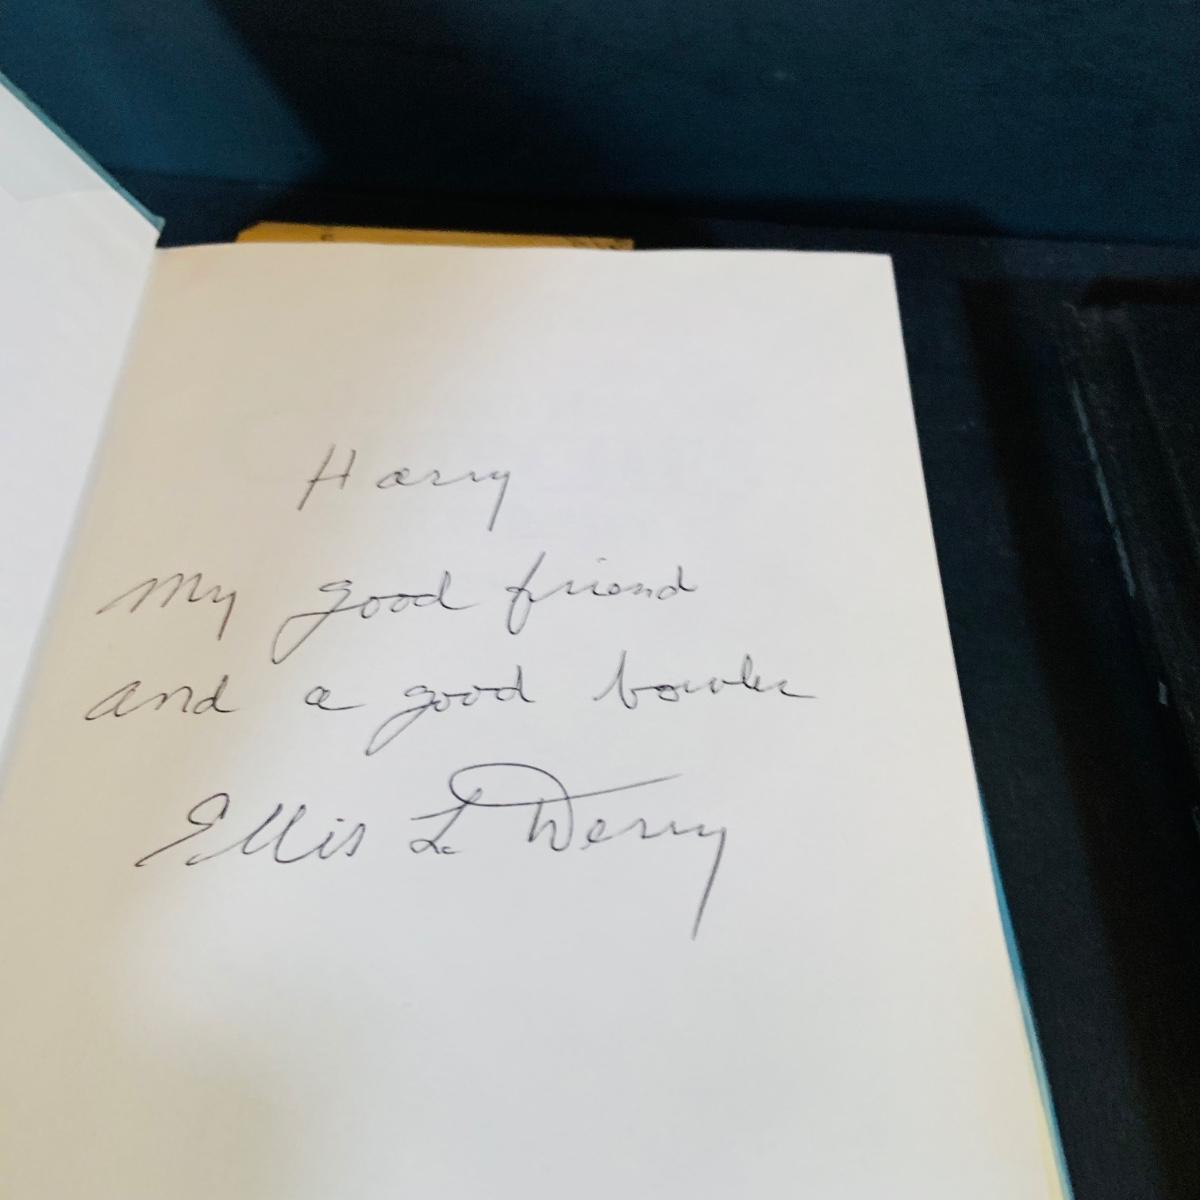 Harry
My good friend
and a good bowler
Ellis L. Derry